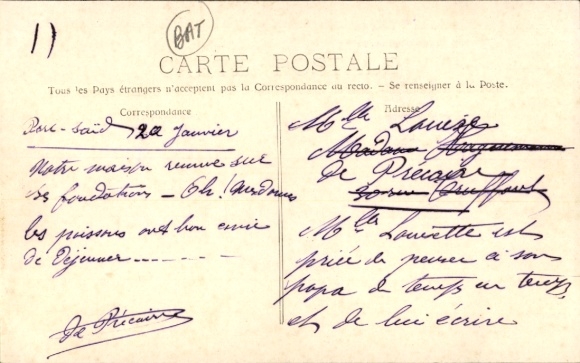 1)
BAT
CARTE POSTALE
Tous les Pays étrangers n'acceptent pas la Correspondance au recto. — Se renseigner à la Poste.
Correspondance
Port-Saïd 22 Janvier
Notre maison remue sur
ses fondations - Oh! Mesdames
les poissons ont bon envie
de Déjeuner - - - - - -
De Précaire
Adresse
Mlle Louise
Madame
de Précaire
Mlle Louisette est
priée de penser à son
papa de temps en temps
et de lui écrire